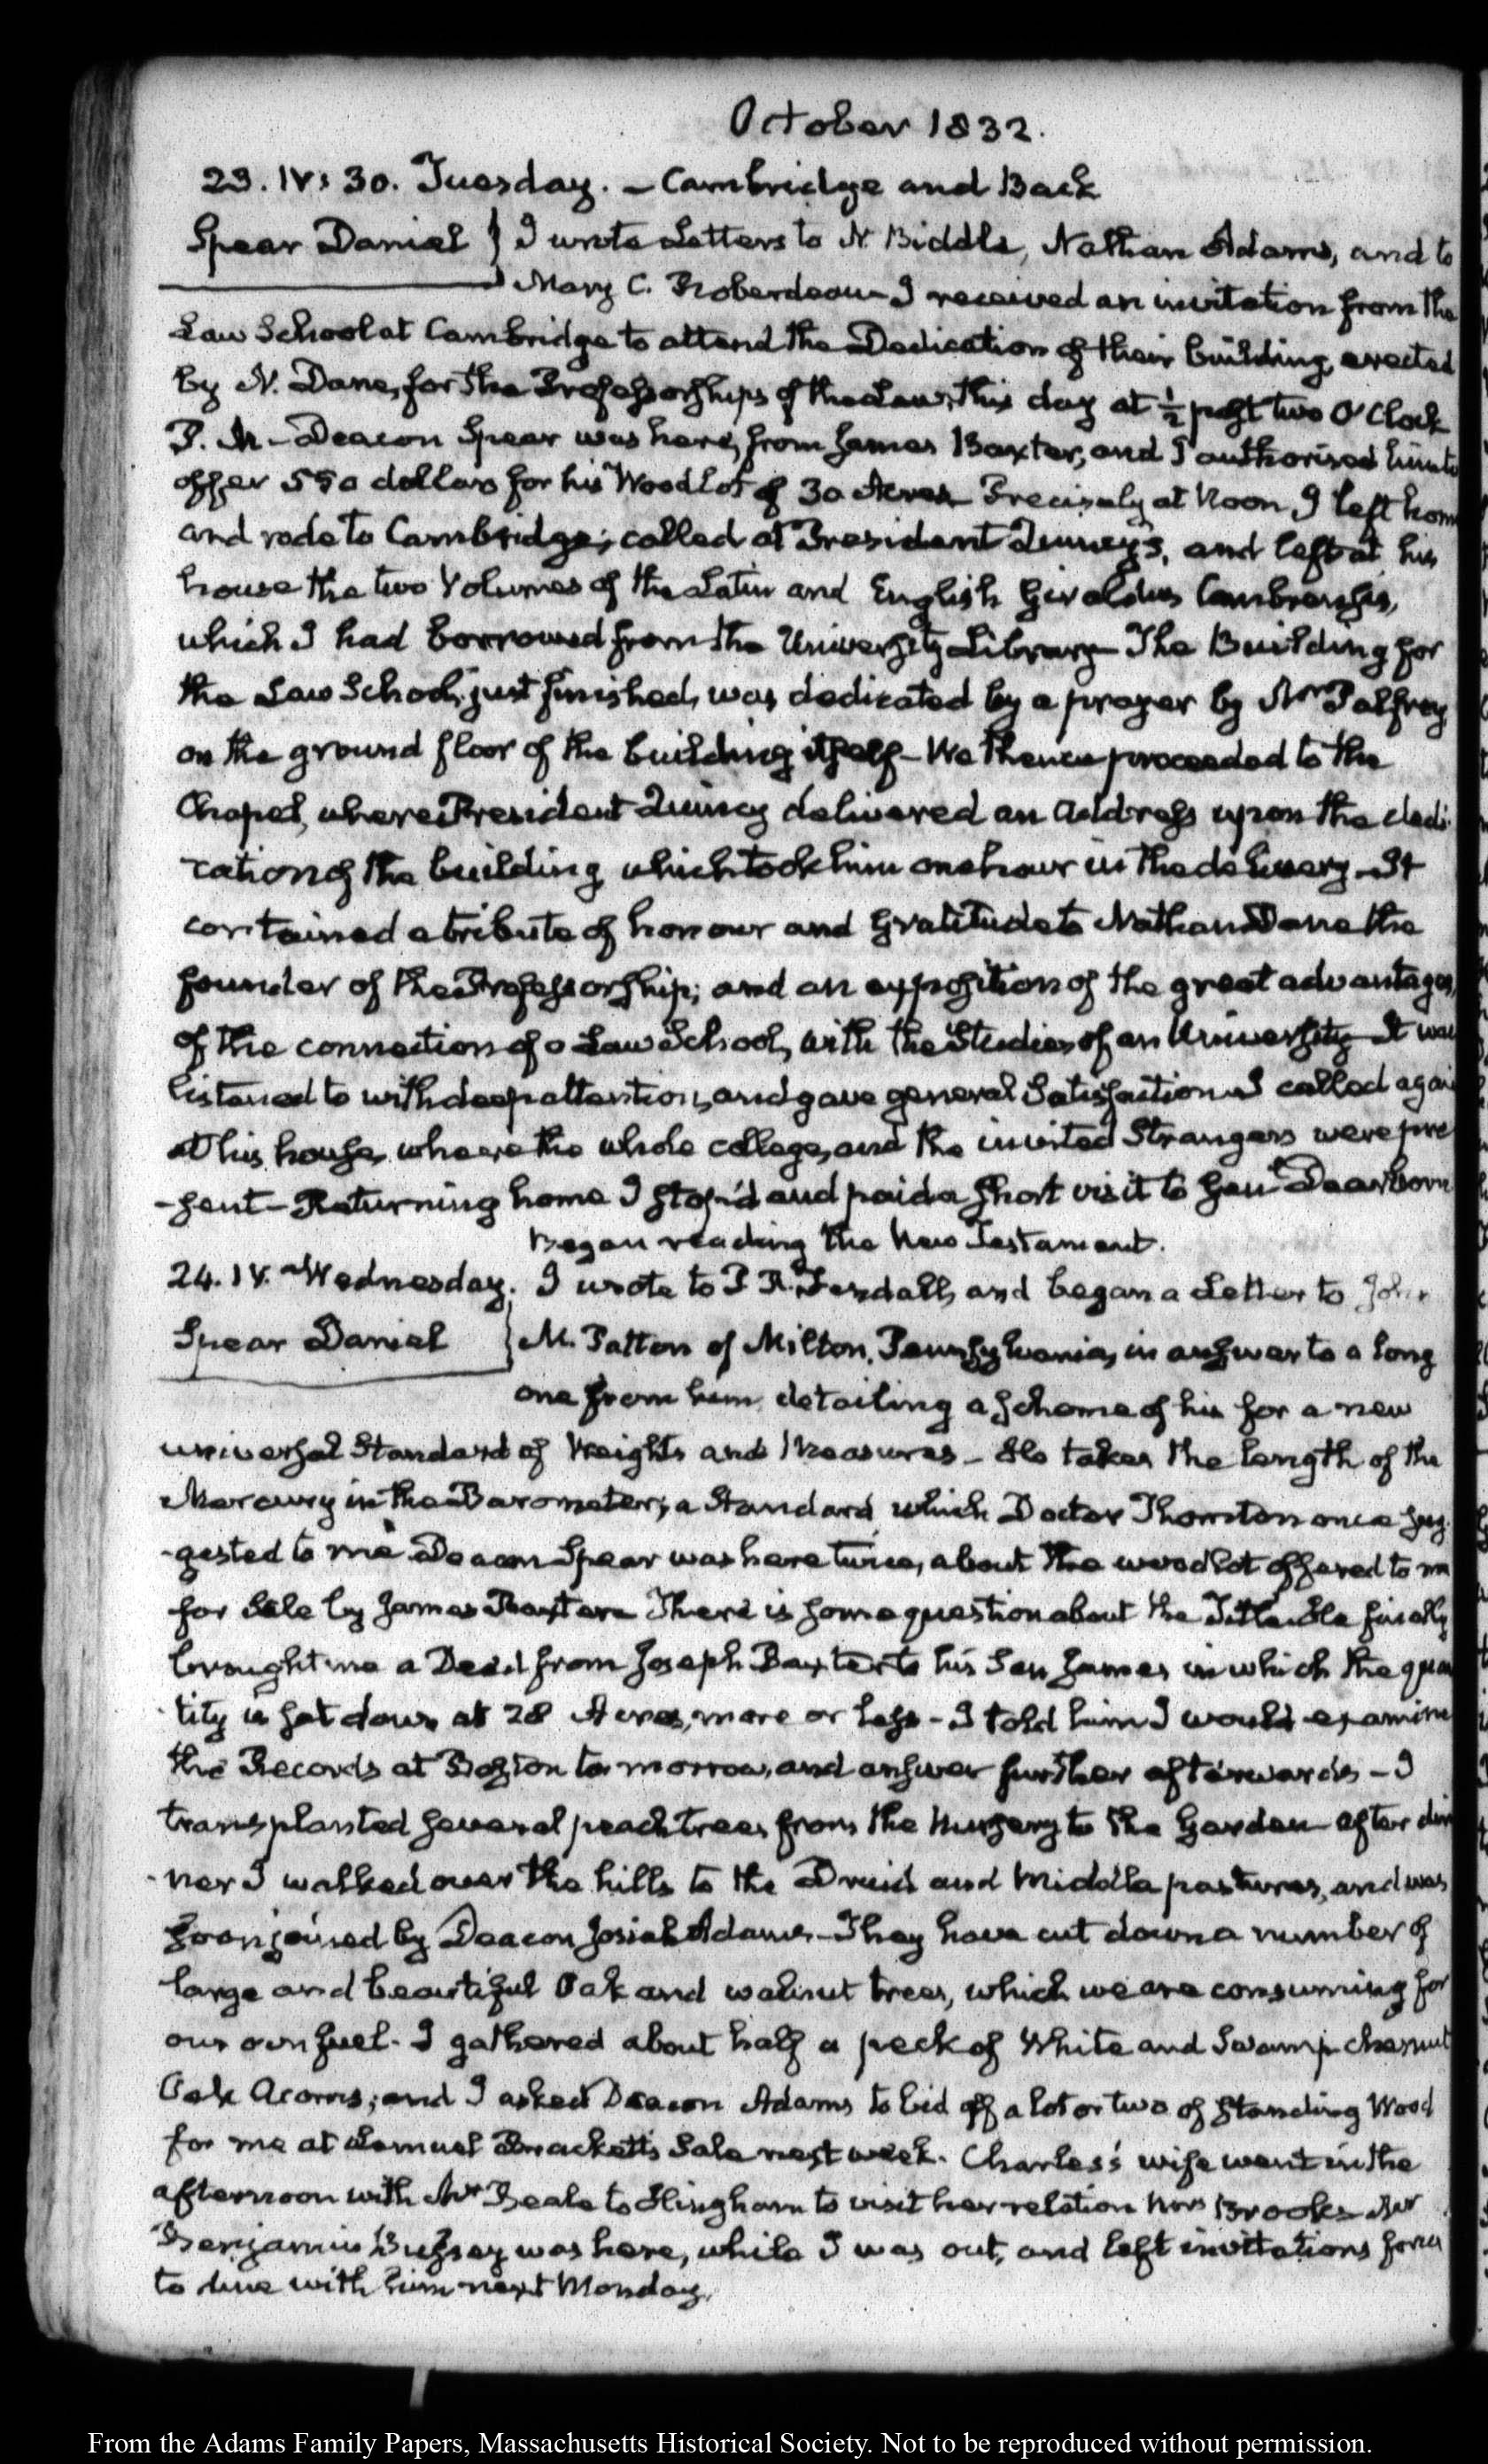 October 1832.
23. IV: 30. Tuesday. – Cambridge and Back
Spear Daniel } I wrote Letters to N. Biddle, Nathan Adams, and to
Mary C. Roberdeau – I received an invitation from the
Law School at Cambridge to attend the Dedication of their building, erected
by N. Dane, for the Professorships of the Law, this day at ½ past two O'Clock
P.M – Deacon Spear was here, from James Baxter, and I authorised him to
offer 550 dollars for his Wood lot of 30 Acres – Precisely at Noon, I left home
and rode to Cambridge; called at President Quincy's, and left at his
house the two Volumes of the Latin and English Giraldus Cambrensis,
which I had borrowed from the University Library – The Building for
the Law School, just finished, was dedicated by a prayer by Mr Palfrey
on the ground floor of the building itself – We thence proceeded to the
Chapel, where President Quincy delivered an Address upon the dedi-
cation of the building which took him one hour in the delivery – It
contained a tribute of honour and gratitude to Nathan Dane the
founder of the Professorship; and an exposition of the great advantages,
of the connection of a Law School, with the Studies of an University – It was
listened to with deep attention, and gave general Satisfaction – I called again
at his house, where the whole college, and the invited Strangers were pre-
-sent – Returning home I stop'd and paid a short visit to Genl Dearborn
Began reading the New Testament.
24. IV. Wednesday. I wrote to P. R. Fendall, and began a Letter to John
Spear Daniel } M. Patton of Milton, Pennsylvania, in answer to a long
one from him detailing a scheme of his for a new
universal Standard of Weights and Measures – He takes the length of the
Mercury in the Barometer; a Standard which Doctor Thornton once sug-
-gested to me – Deacon Spear was here twice, about the wood lot offered to me
for Sale by James Baxter – There is some question about the Title – He finally
brought me a Deed from Joseph Baxter to his Son James in which the quan-
tity is set down at 28 Acres, more or less – I told him I would examine
the Records at Boston to-morrow, and answer further afterwards – I
transplanted several peach trees from the Nursery to the Garden – after din-
-ner I walked over the hills to the Druid and Middle pastures, and was
soon joined by Deacon Josiah Adams – They have cut down a number of
large and beautiful Oak and walnut trees, which we are consuming for
our own fuel. I gathered about half a peck of White and Swamp chesnut
Oak Acorns; and I asked Deacon Adams to bid off a lot or two of standing Wood
for me at Samuel Brackett's Sale next week. Charles's wife went in the
afternoon with Mrs Beale to Hingham to visit her relation Mrs Brooks – Mr
Benjamin Bussey was here, while I was out, and left invitations for us
to dine with him next Monday.
From the Adams Family Papers, Massachusetts Historical Society. Not to be reproduced without permission.